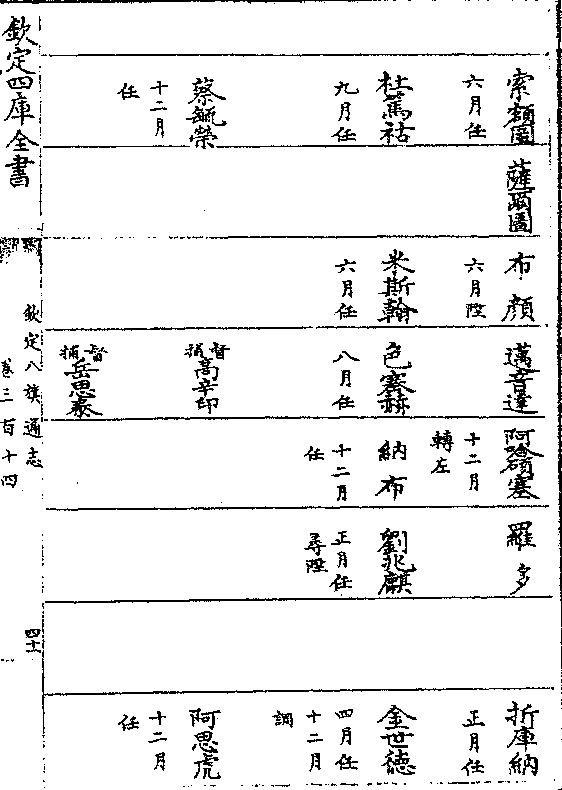 索額圖
六月任
杜篤祜
九月任
蔡毓榮
十二月
任
布顔
六月陞
米斯翰
六月任
邁音達
色賽赫
八月任
督捕
高辛印
督捕
岳思泰
十二月
轉左
納布
十二月
任
羅多
劉兆麒
正月任
尋陞
折庫納
正月任
金世德
四月任
十二月
調
阿思虎
十二月
任
欽定四庫全書
欽定八旗通志
卷三百十四